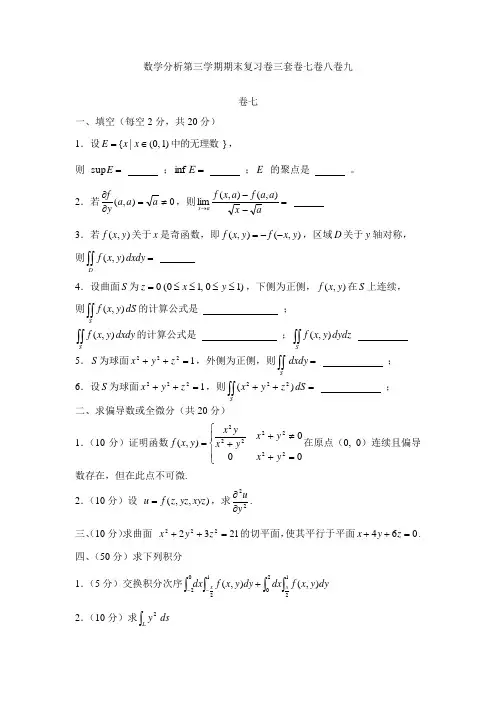 数学分析第三学期期末复习卷三套卷七卷八卷九
卷七
一、填空（每空2分，共20分）
1．设E = {x | x ∈ (0, 1) 中的无理数 }，
则 sup E = ______ ；inf E = ______ ；E 的聚点是 ______ 。
2．若 ∂f/∂y (a, a) = √a ≠ 0，则 lim_{x→a} (f(x, a) − f(a, a))/(√x − √a) = ______
3．若 f(x, y) 关于 x 是奇函数，即 f(x, y) = −f(−x, y)，区域 D 关于 y 轴对称，
则 ∬_D f(x, y)dxdy = ______
4．设曲面 S 为 z = 0 (0 ≤ x ≤ 1, 0 ≤ y ≤ 1)，下侧为正侧，f(x, y) 在 S 上连续，
则 ∬_S f(x, y)dS 的计算公式是 ______ ；
∬_S f(x, y)dxdy 的计算公式是 ______ ；∬_S f(x, y)dydz ______
5．S 为球面 x² + y² + z² = 1，外侧为正侧，则 ∬_S dxdy = ______ ；
6．设 S 为球面 x² + y² + z² = 1，则 ∬_S (x² + y² + z²)dS = ______ ；
二、求偏导数或全微分（共20分）
1．（10分）证明函数 f(x, y) = { x²y/(x² + y²) x² + y² ≠ 0; 0 x² + y² = 0 在原点（0, 0）连续且偏导
数存在，但在此点不可微.
2．（10分）设 u = f(z, yz, xyz)，求 ∂²u/∂y².
三、（10分）求曲面 x² + 2y² + 3z² = 21 的切平面，使其平行于平面 x + 4y + 6z = 0.
四、（50分）求下列积分
1．（5分）交换积分次序 ∫_{−2}^{0} dx ∫_{−x/2}^{1} f(x, y)dy + ∫_{0}^{2} dx ∫_{x/2}^{1} f(x, y)dy
2．（10分）求 ∫_L y² ds